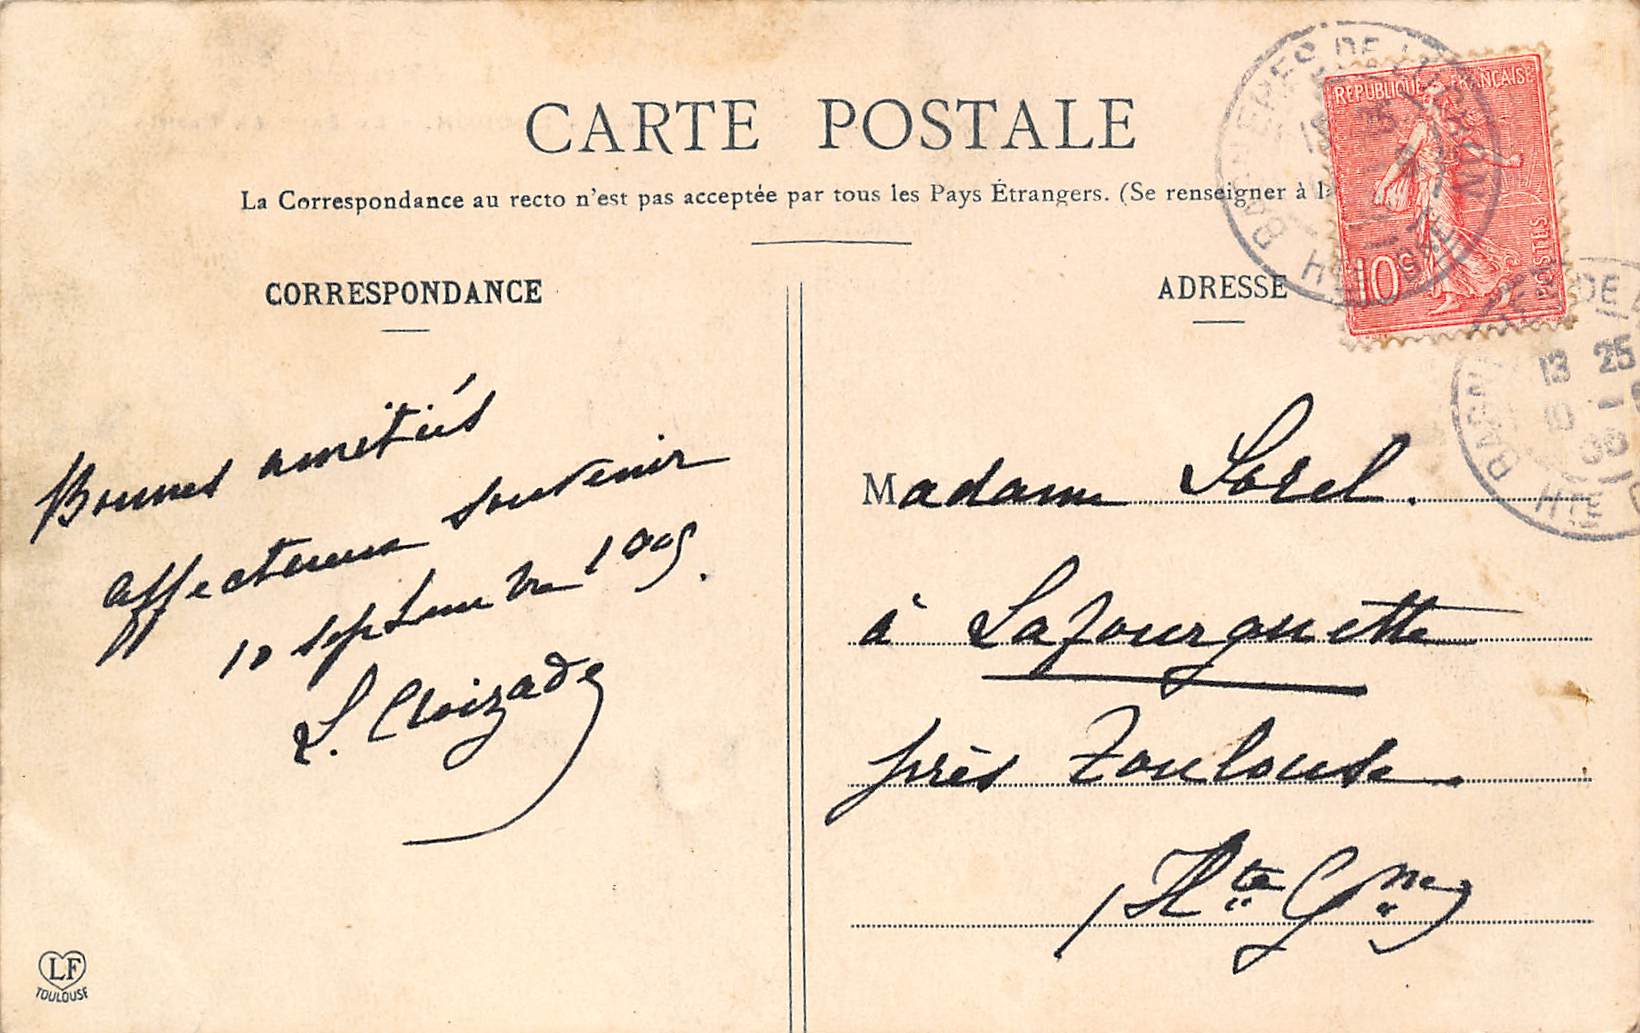 CARTE POSTALE
La Correspondance au recto n'est pas acceptée par tous les Pays Étrangers. (Se renseigner à la
CORRESPONDANCE
Bonnes amitiés
affectueux souvenir
10 septembre 1905.
L. Cloizade
LF
TOULOUSE
ADRESSE
Madame Sorel.
à Lafourguette
près Toulouse.
(Hte Gne)
REPUBLIQUE FRANÇAISE
POSTES
10c
BAGNERES DE LUCHON
Hte GARONNE
DE
13 25
10
HTE